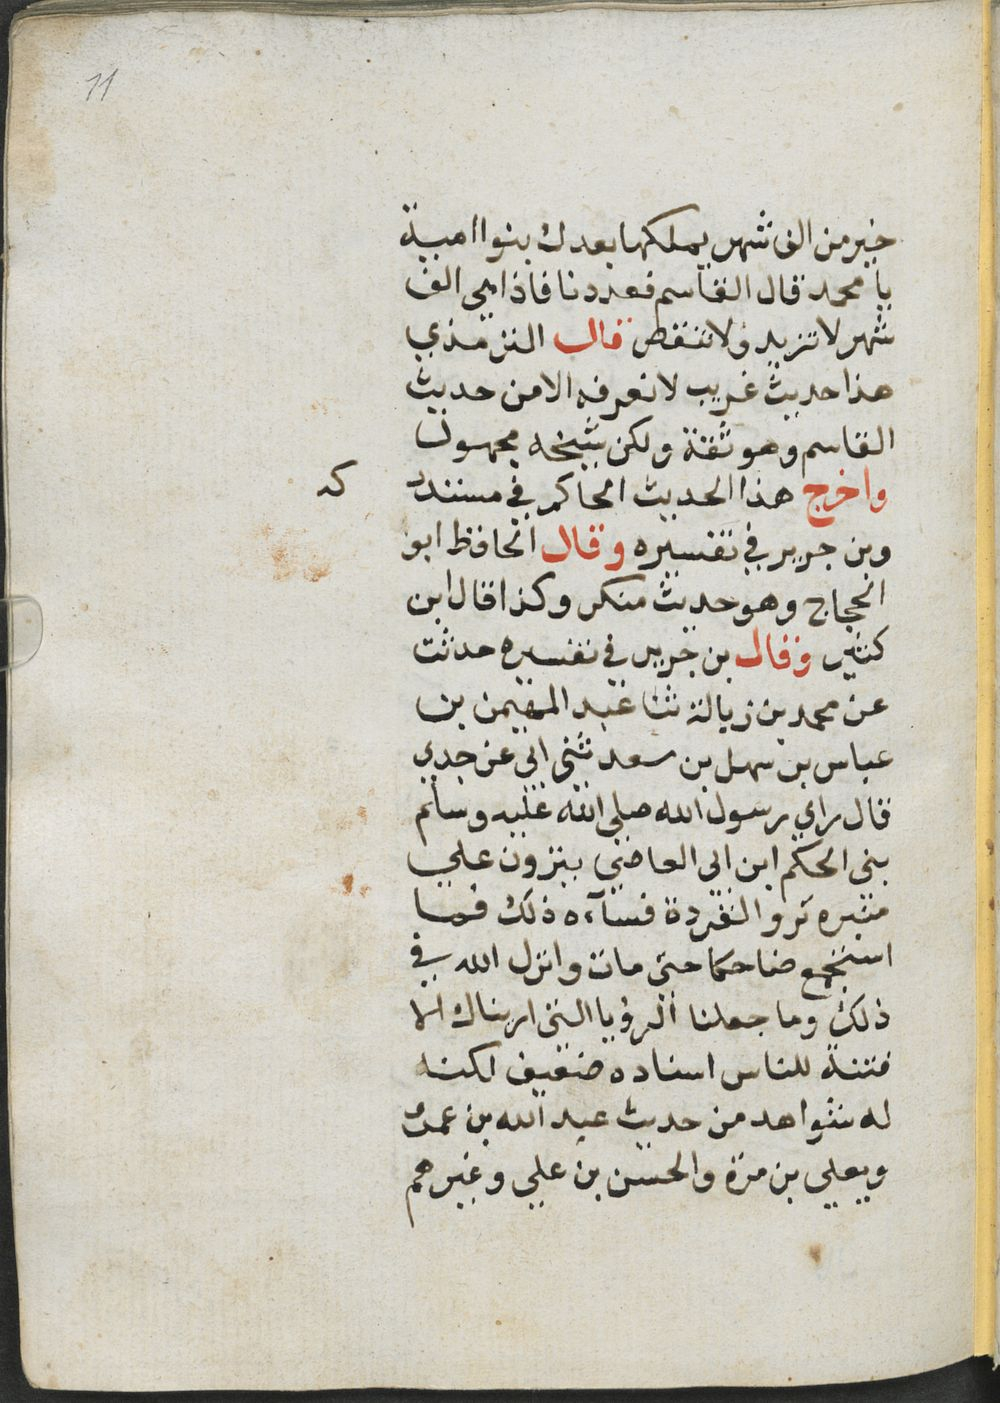 11
خير من الف شهر يملكها بعدك بنوا امية
يا محمد قال القاسم فعددنا فاذا هي الف
شهر لا تزيد ولا تنقص قال الترمذي
هذا حديث غريب لا نعرفه الا من حديث
القاسم وهو ثقة ولكن شيخه مجهول
واخرج هذا الحديث الحاكم في مستدر
كه
وبن جرير في تفسيره وقال الحافظ ابو
الحجاج وهو حديث منكر وكذا قال ابن
كثير وقال بن جرير في تفسيره حدثت
عن محمد بن زبالة ثنا عبد المهيمن بن
عباس بن سهل بن سعد ثني ابي عن جدي
قال راي رسول الله صلى الله عليه وسلم
بني الحكم ابن ابي العاصي ينزون علي
منبره نزو القردة فسآءه ذلك فما
استجمع ضاحكا حتى مات وانزل الله في
ذلك وما جعلنا الرؤيا التي اريناك الا
فتنة للناس اسناده ضعيف لكنه
له شواهد من حديث عبد الله بن عمر
ويعلي بن مرة والحسن بن علي وغيرهم